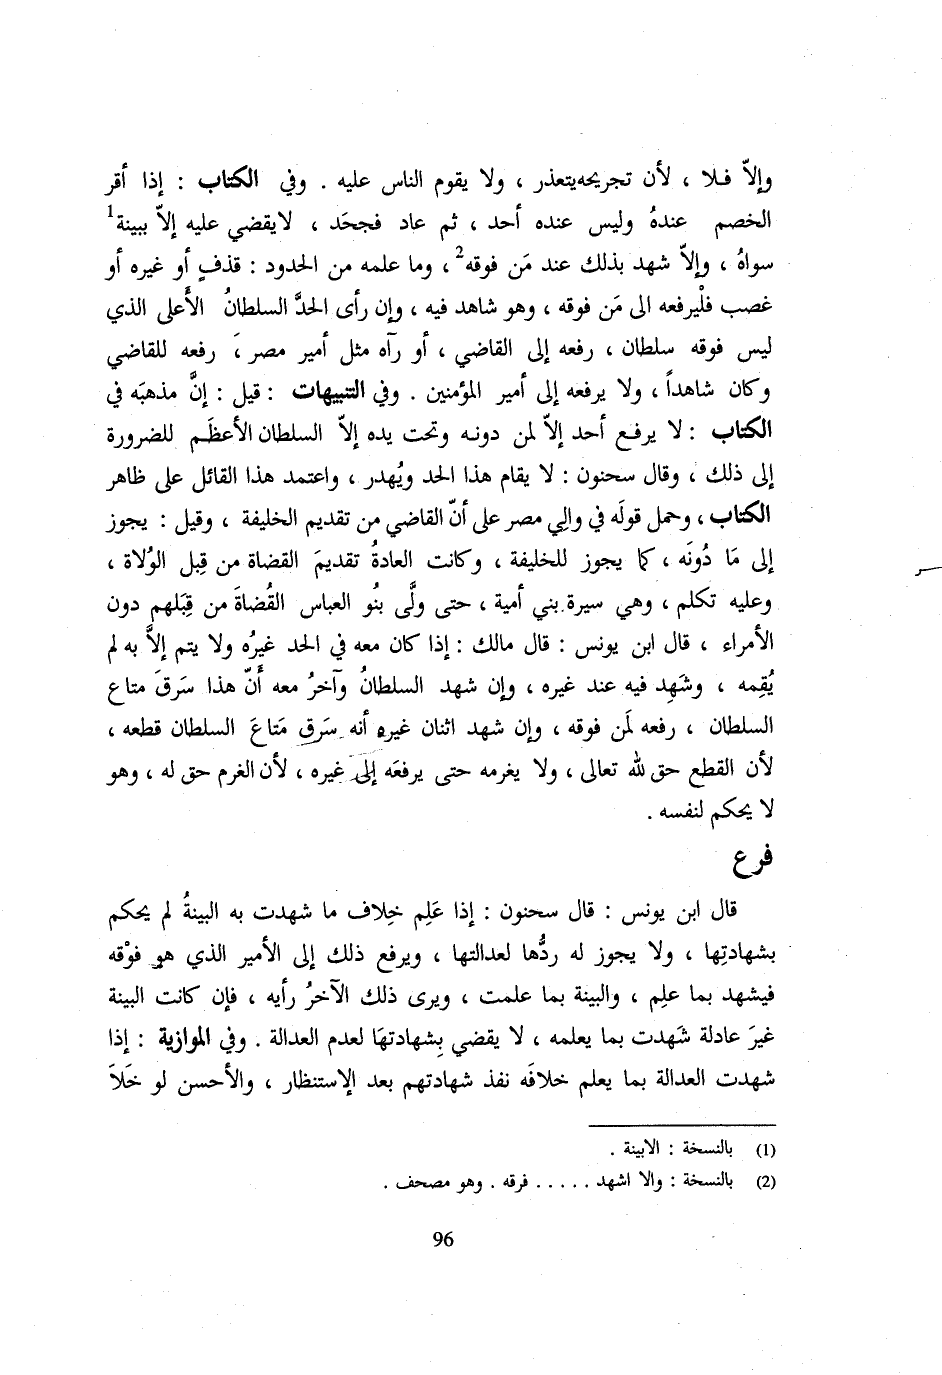 وإلاّ فـلا ، لأن تجريحه يتعذر ، ولا يقوم الناس عليه . وفي الكتاب : إذا أقر
الخصم عندهُ وليس عنده أحد ، ثم عاد فجحَد ، لايقضي عليه إلاّ ببينة1
سواهُ ، وإلاّ شهد بذلك عند مَن فوقه2 ، وما علمه من الحدود : قذفٍ أو غيره أو
غصب فلْيرفعه الى مَن فوقه ، وهو شاهد فيه ، وإن رأى الحدَّ السلطانُ الأَعلى الذي
ليس فوقه سلطان ، رفعه إلى القاضي ، أو رآه مثل أمير مصر ، رفعه للقاضي
وكان شاهداً ، ولا يرفعه إلى أمير المؤمنين . وفي التنبيهات : قيل : إنَّ مذهبَه في
الكتاب : لا يرفع أحد إلاّ لمن دونه وتحت يده إلاّ السلطان الأعظَم للضرورة
إلى ذلك ، وقال سحنون : لا يقام هذا الحد ويُهدر ، واعتمد هذا القائل على ظاهر
الكتاب ، وحمل قولَه في والِي مصر على أنّ القاضي من تقديم الخليفة ، وقيل : يجوز
إلى مَا دُونَه ، كما يجوز للخليفة ، وكانت العادةُ تقديمَ القضاة من قِبل الوُلاة ،
وعليه تكلم ، وهي سيرة بني أمية ، حتى ولَّى بنُو العباس القُضاةَ من قِبَلهم دون
الأمراء ، قال ابن يونس : قال مالك : إذا كان معه في الحد غيرُه ولا يتم إلاَّ به لم
يُقِمه ، وشَهِد فيه عند غيره ، وإن شهد السلطانُ وآخرُ معه أَنّ هذا سَرقَ متاع
السلطان ، رفعه لمَن فوقه ، وإن شهد اثنان غيره أنه سَرق مَتاعَ السلطان قطعه ،
لأن القطع حق لله تعالى ، ولا يغرمه حتى يرفعَه إلى غيره ، لأن الغرم حق له ، وهو
لا يحكم لنفسه .
فرع
قال ابن يونس : قال سحنون : إذا عَلِم خِلاف ما شهدت به البينةُ لم يحكم
بشهادتِها ، ولا يجوز له ردُّها لعدالتها ، ويرفع ذلك إلى الأمير الذي هو فوْقه
فيشهد بما علِم ، والبينة بما علمت ، ويرى ذلك الآخرُ رأيه ، فإن كانت البينة
غيرَ عادلة شَهدت بما يعلمه ، لا يقضي بِشهادتهَا لعدم العدالة . وفي الموازية : إذا
شهدت العدالة بما يعلم خلافَه نفذ شهادتهم بعد الإستنظار ، والأحسن لو خَلاَ
(1) بالنسخة : الابينة .
(2) بالنسخة : والا اشهد . . . . . فرقه . وهو مصحف .
96